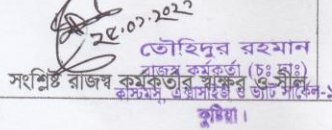 ২৫.০১.২০২২
তৌহিদুর রহমান
রাজস্ব কর্মকর্তা (চঃ দাঃ)
সংশ্লিষ্ট রাজস্ব কর্মকর্তার স্বাক্ষর ও সীল
কাস্টমস, এক্সাইজ ও ভ্যাট সার্কেল-১
কুষ্টিয়া।